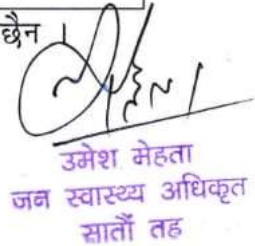 छैन।
उमेश मेहता
जन स्वास्थ्य अधिकृत
सातौं तह